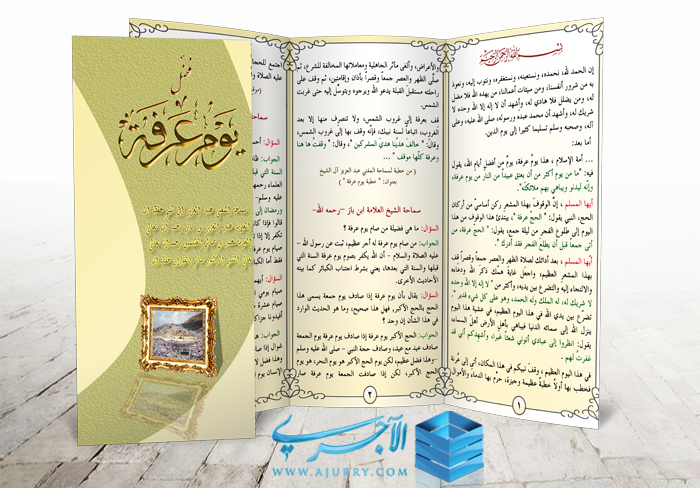 فضل
يوم عرفة
بسم الله الرحمن الرحيم
إن الحمد لله، نحمده، ونستعينه، ونستغفره، ونتوب إليه، ونعوذ
به من شرور أنفسنا، ومن سيئات أعمالنا، من يهده الله فلا مضل
له، ومن يضلل فلا هادي له، وأشهد أن لا إله إلا الله وحده لا
شريك له، وأشهد أن محمد عبده ورسوله، صلى الله عليه، وعلى
آله، وصحبه وسلم تسليما كثيرا إلى يوم الدين.
أما بعد:
... أمة الإسلام ، هذا يوم عرفة، يومٌ من أفضلِ أيامِ الله، يقول
فيه: "ما من يوم أكثر من أن يعتق عبيداً من النار من يوم عرفة،
وإنه ليدنو ويباهي بهم ملائكته".
أيها المسلم ، إنَّ الوقوفَ بهذا المشعر ركن أساسيّ من أركان
الحج، النبي يقول: " الحجّ عرفة "، يبتدئ هذا الوقوف من هذا
اليومِ إلى طلوع الفجر من ليلة جمع، يقول: " الحج عرفة، من
أتى جمعاً قبل أن يطلع الفجر فقد أدرك ".
أيها المسلم ، بعد أدائك لصلاة الظهر والعصر جمعاً وقصراً قف
بهذا المشعر العظيم، واجعل غايةَ همّك ذكرَ الله ودعاءه
والالتجاء إليه والتضرع بين يديه، وأكثر من " لا إله إلا الله وحده
لا شريك له، له الملك وله الحمد، وهو على كل شيء قدير " .
تضرَّع بين يدي الله في هذا اليوم العظيم، في عشية هذا اليوم
ينزل الله إلى سمائه الدنيا فيباهي بأهل الأرض أهلَ السماء،
يقول: انظروا إلى عبادي أتوني شعثاً غبراً، وأشهدكم أني قد
غفرت لهم .
في هذا اليوم العظيم ، وقفَ نبيكم في هذا المكان، أتى إلى عُرنة
فخطب بها أولاً خطبةً عظيمة وجيزة، حرّم بها الدماء والأموال
١
والأعراض، وألغى مآثر الجاهلية ومعاملاتها المخالفة للشرع، ثم
صلّى الظهر والعصر جمعاً وقصراً بأذان وإقامتين، ثم وقف على
راحلته مستقبلَ القبلة يدعو الله ويرجوه ويتوسّل إليه حتى غربت
الشمس.
قف بعرفة إلى غروب الشمس، ولا تنصرِف منها إلا بعد
الغروب، اتباعاً لسنة نبيك، فإنَّه وقف بها إلى غروب الشمس،
وقال: " خالَف هديُنا هديَ المشركين "، وقال: " وقفتُ ها هنا
وعرفة كلّها موقف "...
( من خطبة لسماحة المفتي عبد العزيز آل الشيخ
بعنوان: " خطبة يوم عرفة " )
سماحة الشيخ العلامة ابن باز –رحمه الله-
السؤال: ما هي فضيلة من صام يوم عرفة ؟
الجواب: من صام يوم عرفة له أجر عظيم، ثبت عن رسول الله –
عليه الصلاة والسلام – أن الله يكفر بصوم يوم عرفة السنة التي
قبلها والسنة التي بعدها، يعني بشرط اجتناب الكبائر كما بينه
الأحاديث الأخرى.
السؤال: يقال بأن يوم عرفة إذا صادف يوم جمعة يسمى هذا
الحج بالحج الأكبر، فهل هذا صحيح، وما هو الحديث الوارد
في هذا الشأن إن وجد ؟
الجواب: الحج الأكبر يوم عرفة إذا صادف يوم عرفة يوم الجمعة
صادف عيد مع عيد، وصادف حجة النبي – صلى الله عليه وسلم
–وهذا فضل عظيم، لكن يوم الحج الأكبر هو يوم النحر، هو يوم
الحج الأكبر، لكن إذا صادفت الجمعة يوم عرفة صار
٢
الآجري
WWW.AJURRY.COM